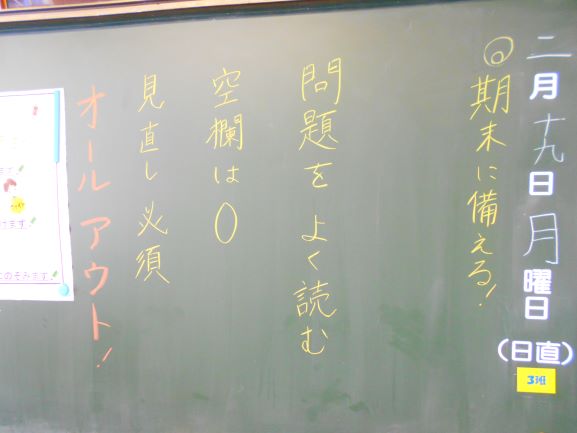 二月十九日月曜日
(日直)
3班
◎期末に備える!
問題をよく読む
空欄は0
見直し必須
オールアウト!
ます
ます
このぞみます